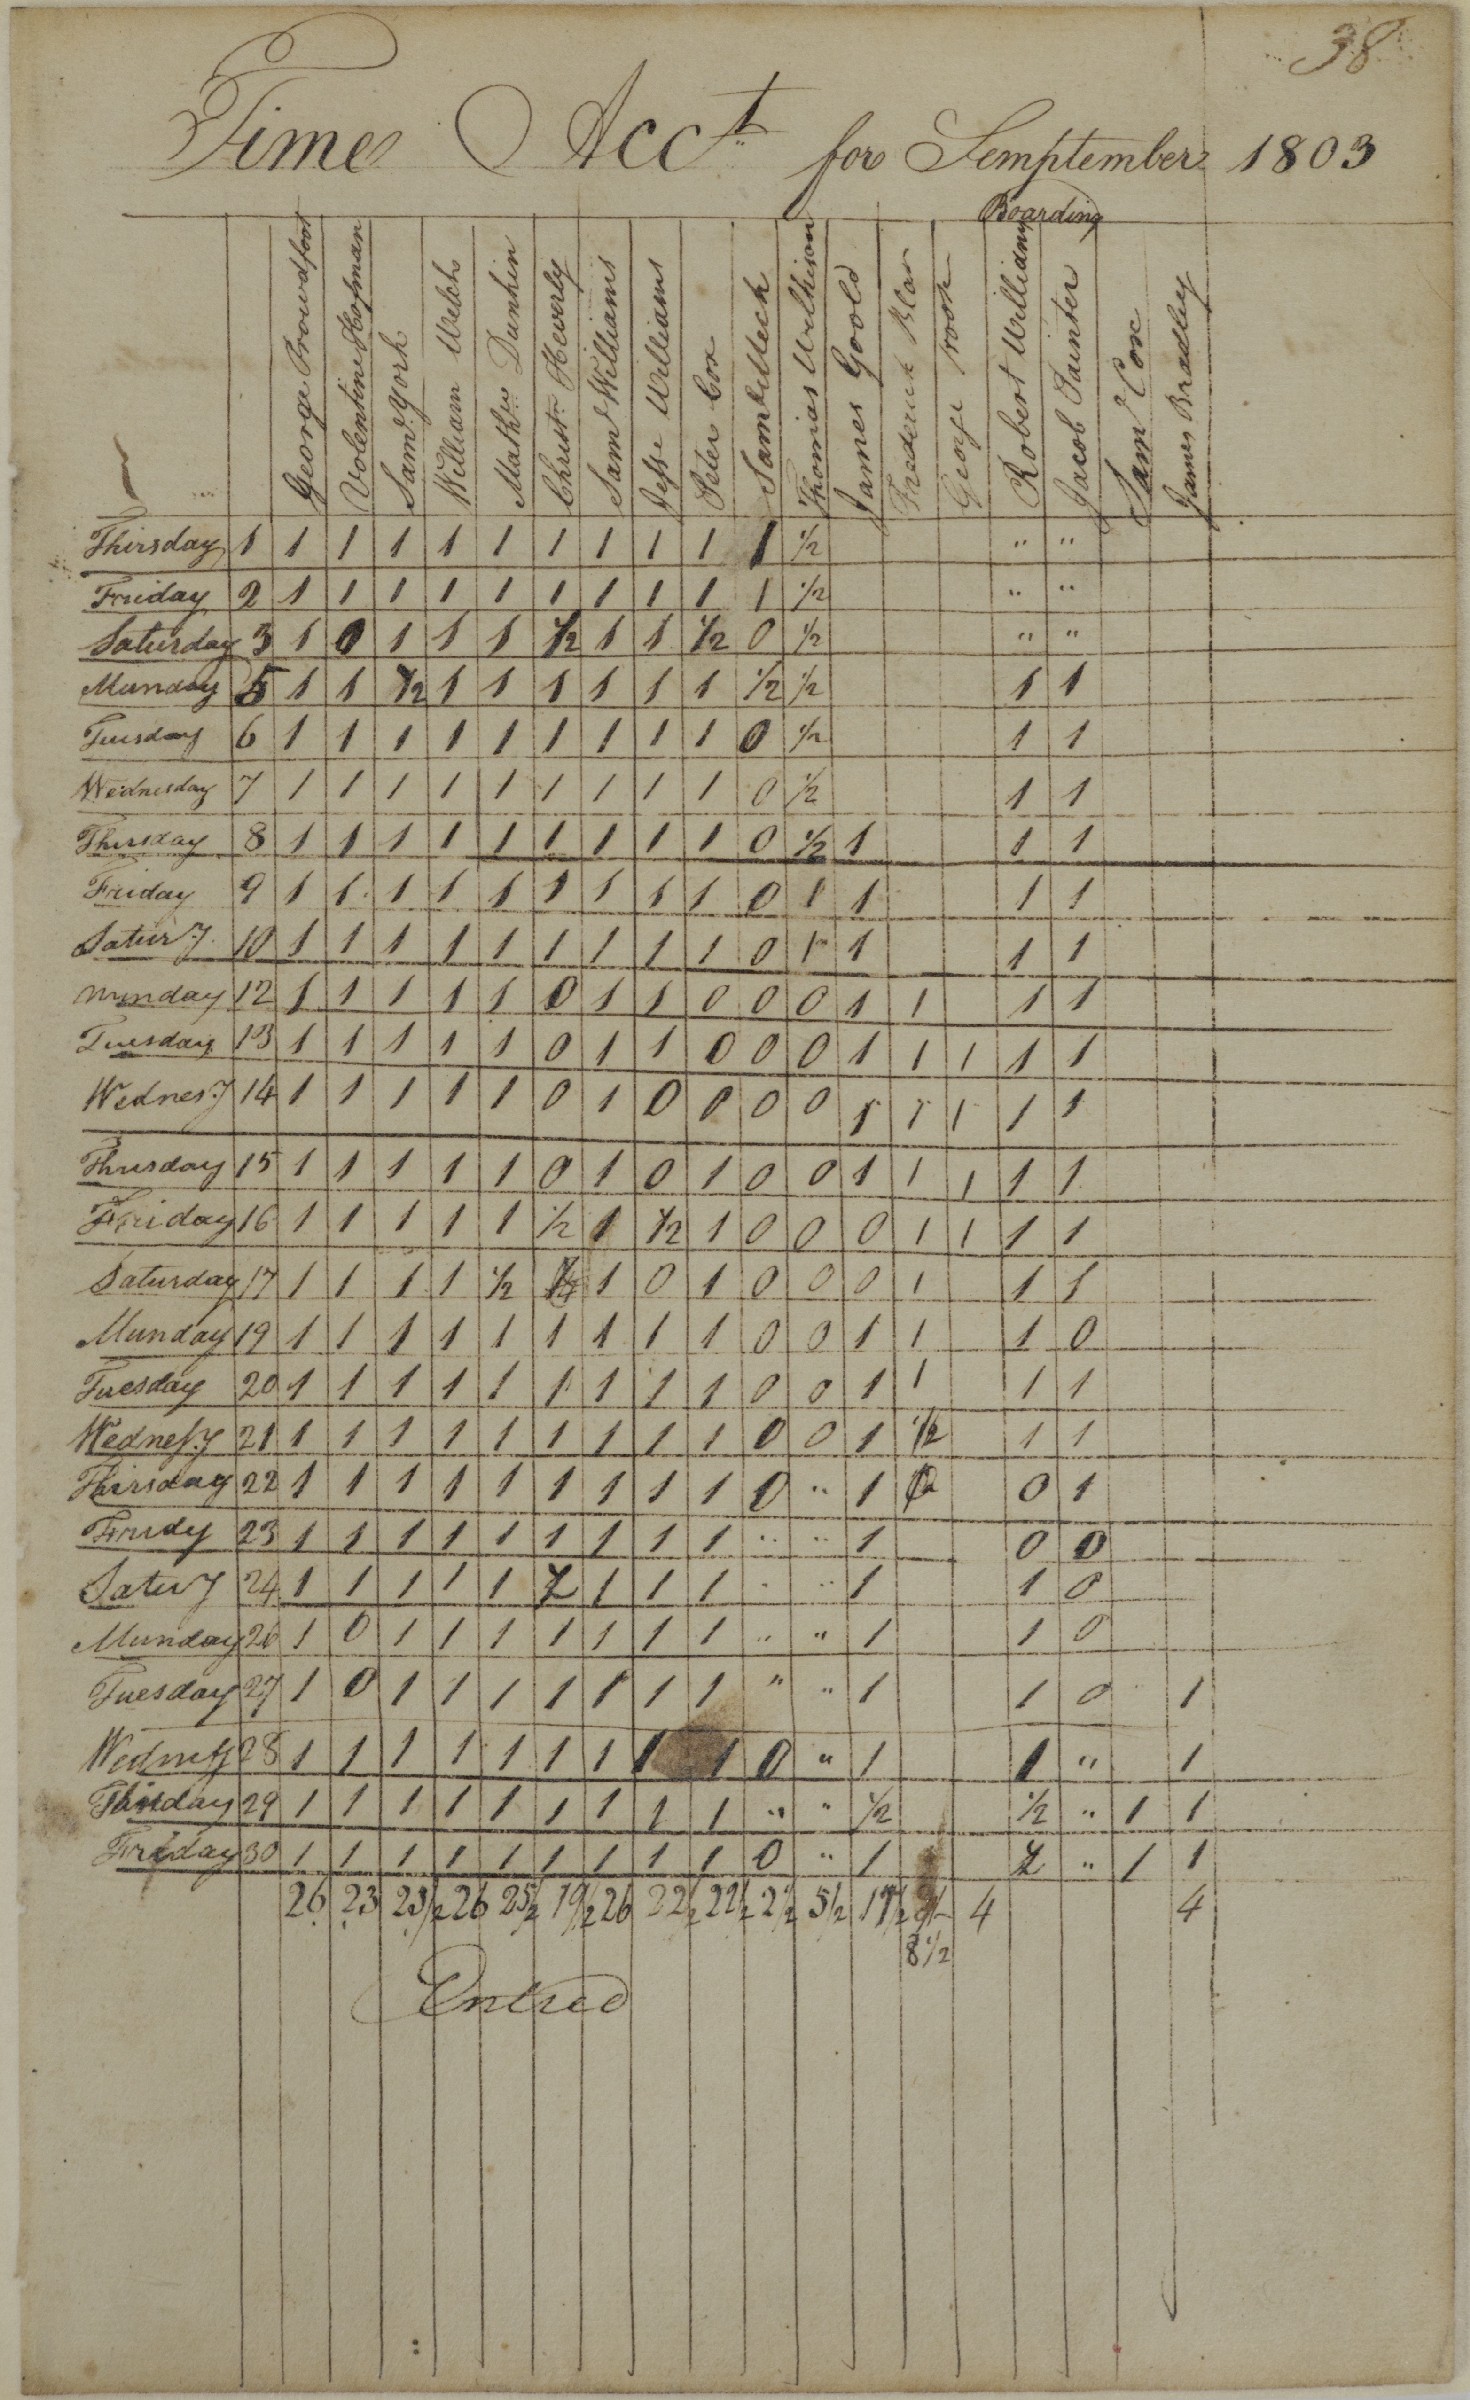 38
Time Acct for Semptember 1803
Boarding
George Proudfoot Volentine Hofman Saml. York William Welch Mathw Dunkin Christn Heverly Saml Williams Jesse Williams Peter Cox Saml Meek Thomas Wilkison James Goold Frederick Blar George rook Robert Williams Jacob Painter Saml Cox James Bradley
Thirsday 1 1 1 1 1 1 1 1 1 1 1 1/2 " "
Friday 2 1 1 1 1 1 1 1 1 1 1 1/2 " "
Saturday 3 1 0 1 1 1 1/2 1 1 1/2 0 1/2 " "
Munday 5 1 1 1/2 1 1 1 1 1 1 1/2 1/2 1 1
Tuesday 6 1 1 1 1 1 1 1 1 1 0 1/2 1 1
Wednesday 7 1 1 1 1 1 1 1 1 1 0 1/2 1 1
Thursday 8 1 1 1 1 1 1 1 1 1 0 1/2 1 1 1
Friday 9 1 1 1 1 1 1 1 1 1 0 1 1 1 1
Satury 10 1 1 1 1 1 1 1 1 1 0 1 1 1 1
munday 12 1 1 1 1 1 0 1 1 0 0 0 1 1 1 1
Tuesday 13 1 1 1 1 1 0 1 1 0 0 0 1 1 1 1 1
Wednes.y 14 1 1 1 1 1 0 1 0 0 0 0 1 1 1 1 1
Thusday 15 1 1 1 1 1 0 1 0 1 0 0 1 1 1 1 1
Friday 16 1 1 1 1 1 1/2 1 1/2 1 0 0 0 1 1 1 1
Saturday 17 1 1 1 1 1/2 1/4 1 0 1 0 0 0 1 1 1
Munday 19 1 1 1 1 1 1 1 1 1 0 0 1 1 1 0
Tuesday 20 1 1 1 1 1 1 1 1 1 0 0 1 1 1 1
Wednes.y 21 1 1 1 1 1 1 1 1 1 0 0 1 1/2 1 1
Thirsday 22 1 1 1 1 1 1 1 1 1 0 " 1 0 1
Fridy 23 1 1 1 1 1 1 1 1 1 " " 1 0 0
Satury 24 1 1 1 1 1 1/2 1 1 1 " " 1 1 0
Munday 26 1 0 1 1 1 1 1 1 1 " " 1 1 0
Tuesday 27 1 0 1 1 1 1 1 1 1 " " 1 1 0 1
Wednsy 28 1 1 1 1 1 1 1 1 1 0 " 1 1 " 1
Thisday 29 1 1 1 1 1 1 1 1 1 " " 1/2 1/2 " 1 1
Friday 30 1 1 1 1 1 1 1 1 1 0 " 1 1/2 " 1 1
26 23 25 1/2 26 25 1/2 19 1/2 26 22 1/2 22 1/2 2 1/2 5 1/2 17 1/2 4 4
8 1/2
Entred